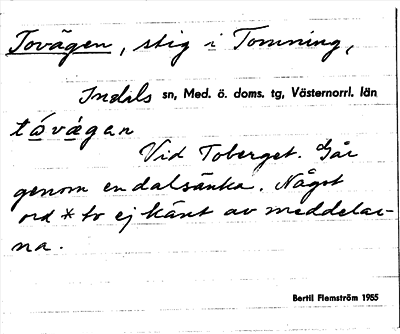 Tovägen, stig i Tomning,
Indals sn, Med. ö. doms. tg, Västernorrl. län
tóvägan
Vid Toberget. Går
genom en dalsänka. Något
ord * to ej känt av meddelar-
na.
Bertil Flemström 1955